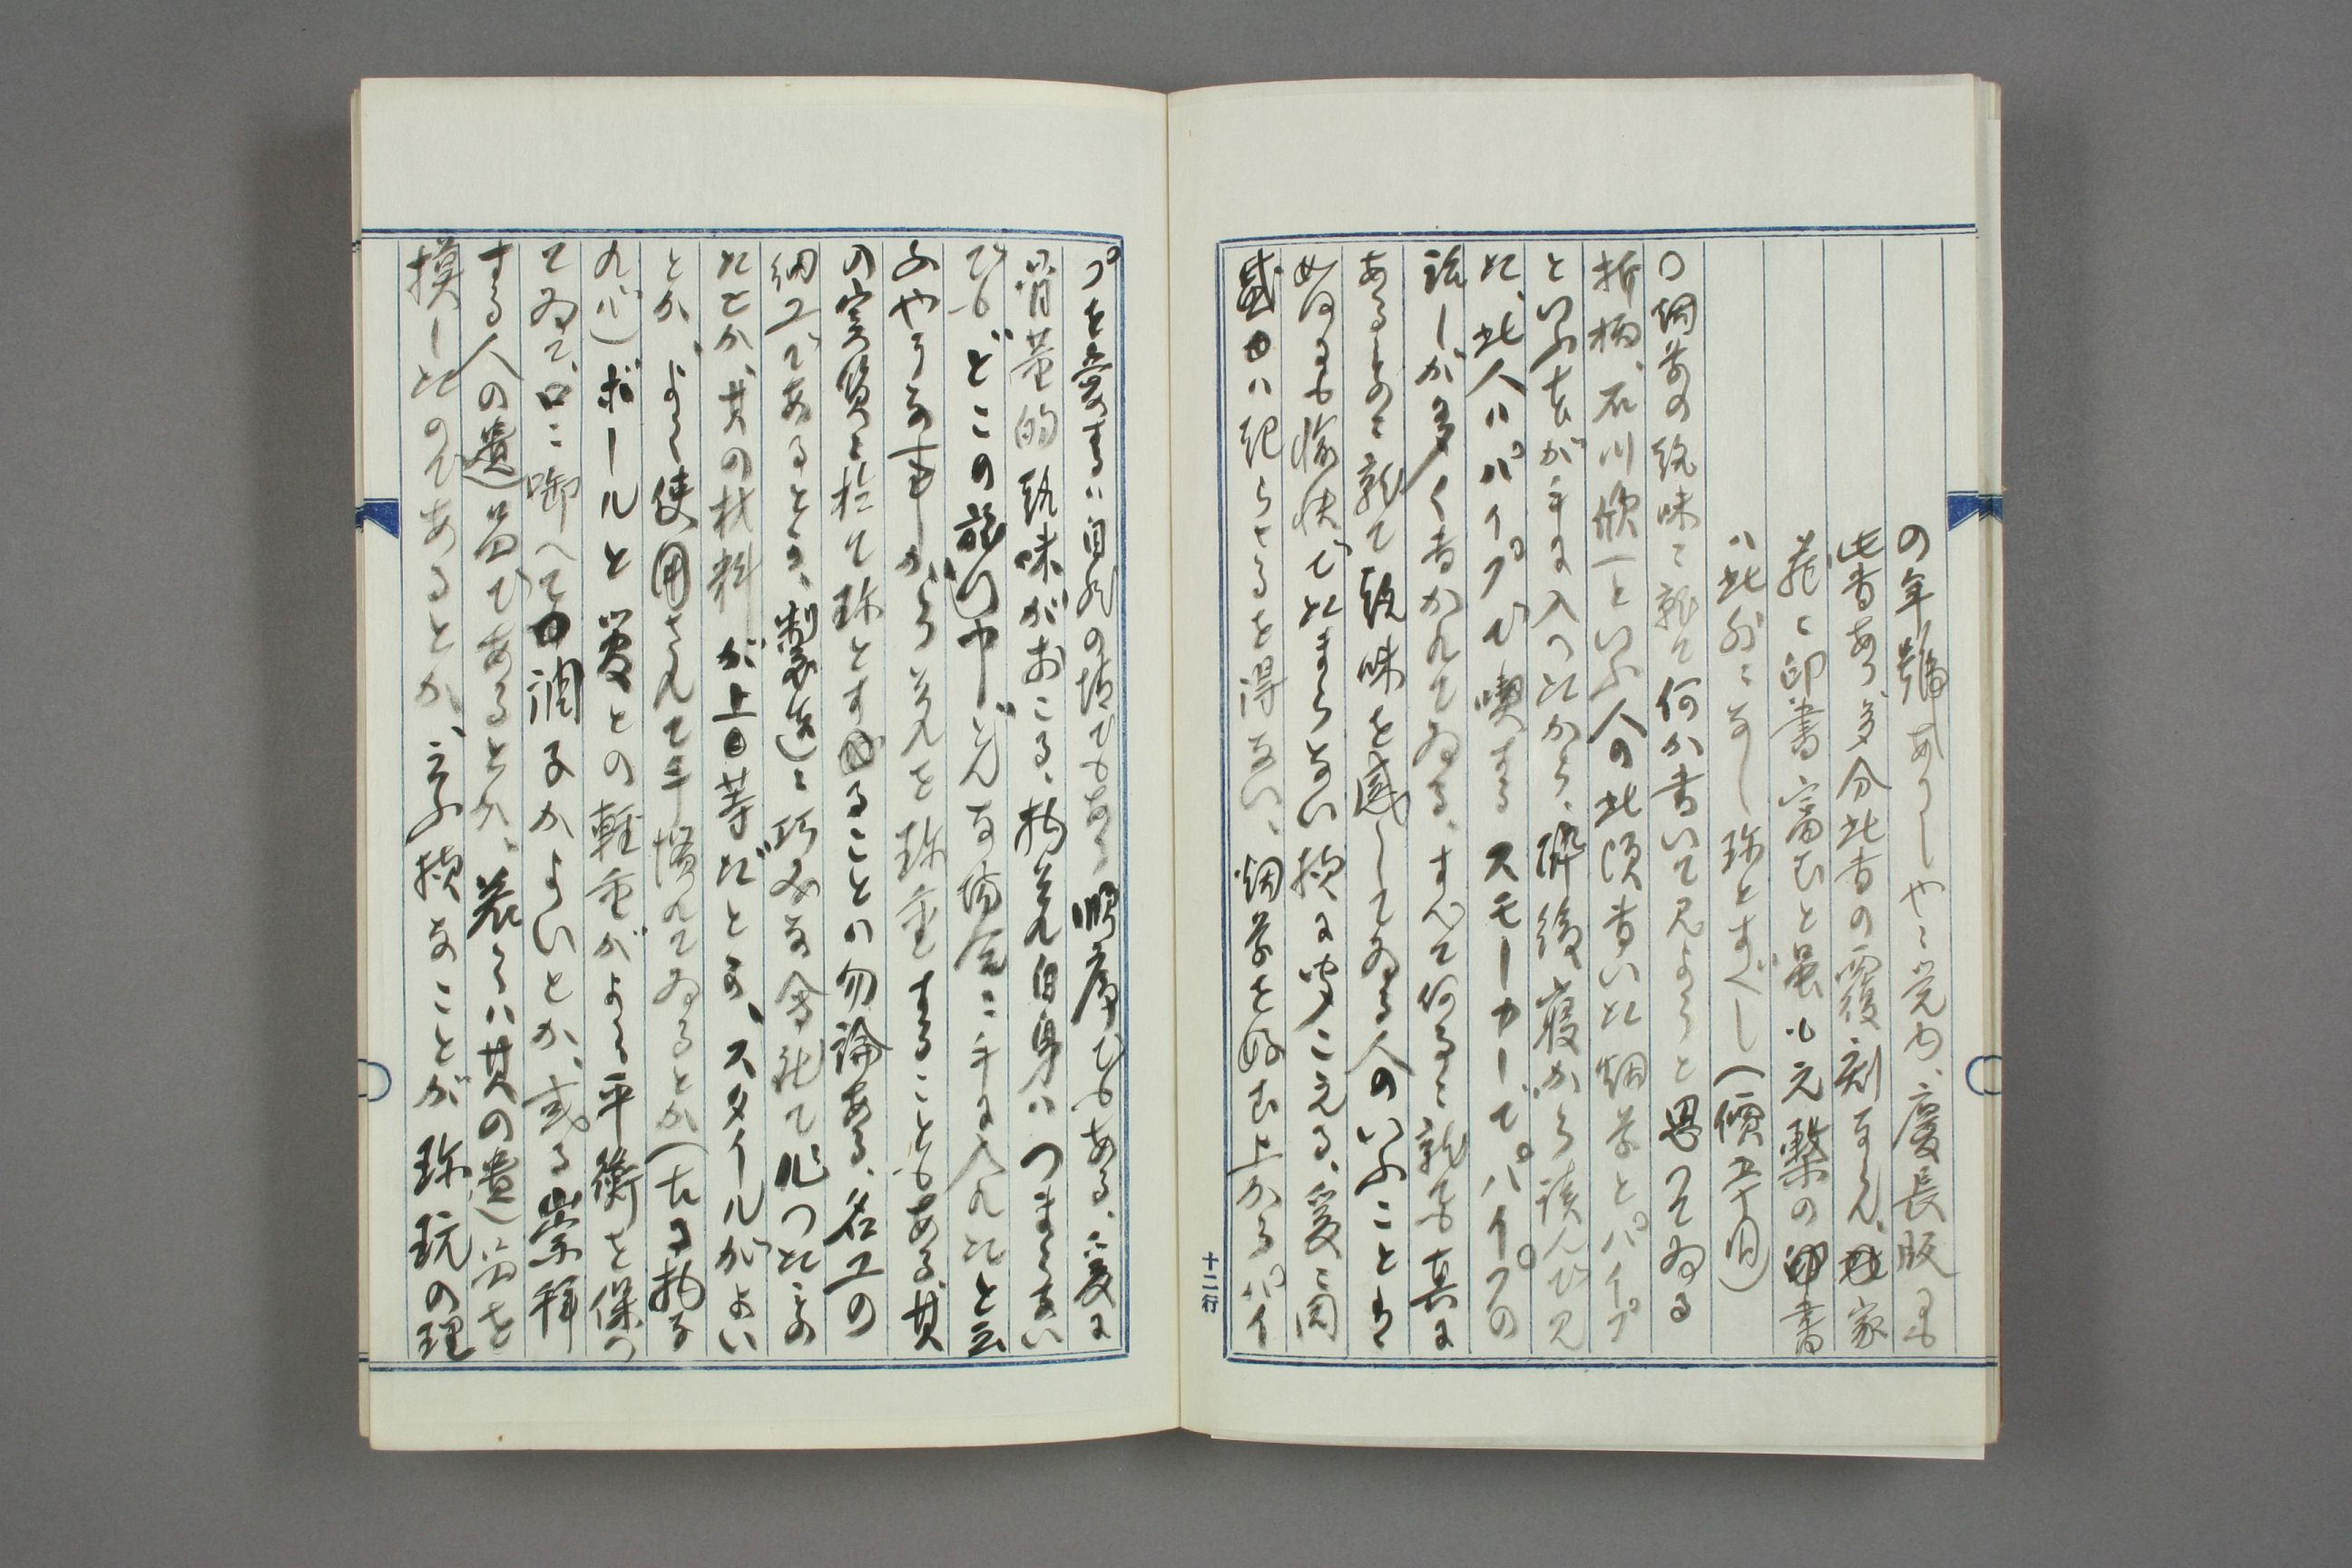 の年號ありしやに覚ゆ、慶長版にも
此書あり、多分此書の覆刻ならん、家
蔵に印書富むと虽も元槧の書
ハ此外になし珍とすべし（價五十円）
〇烟草の趣味に就て何か書いて見ようと思つてゐる
折柄、石川欣一といふ人の此頃書いた烟草とパイプ
といふ本が手に入つたから、酔後寝から読んで見
た、此人ハパイプで喫する スモーカーで。パイプの
話しが多く書かれてゐる、すべて何事に就ても真に
あるものに就て趣味を感してゐる人のいふことは
如何にも愉快でたまらない様に聞こえる、爰に同
感ハ起らざるを得ない、烟草を好む上からパイ
プを愛するハ自然の情である 順序でもある、爰に
骨董的趣味がおこる、物其れ自身ハつまらない
でも、どこの旅行中どんな場合に手に入れたと云
ふやうな事から其れを珍重することもある、其
の実質に於て珍とすることハ勿論ある、名工の
細工であるとか、製造に巧みな会社で作つたもの
だとか、其の材料が上等だとか、スタイルがよい
とか、よく使用されて手擦れてゐるとか（古る物な
れバ）ボールと愛との軽重がよく平衡を保つ
てゐて、口に啣へて調子かよいとか、或る崇拝
する人の遺品であるとか、若くハ其の遺品を
摸したのであるとか、云ふ様なことが珍玩の理
十二行